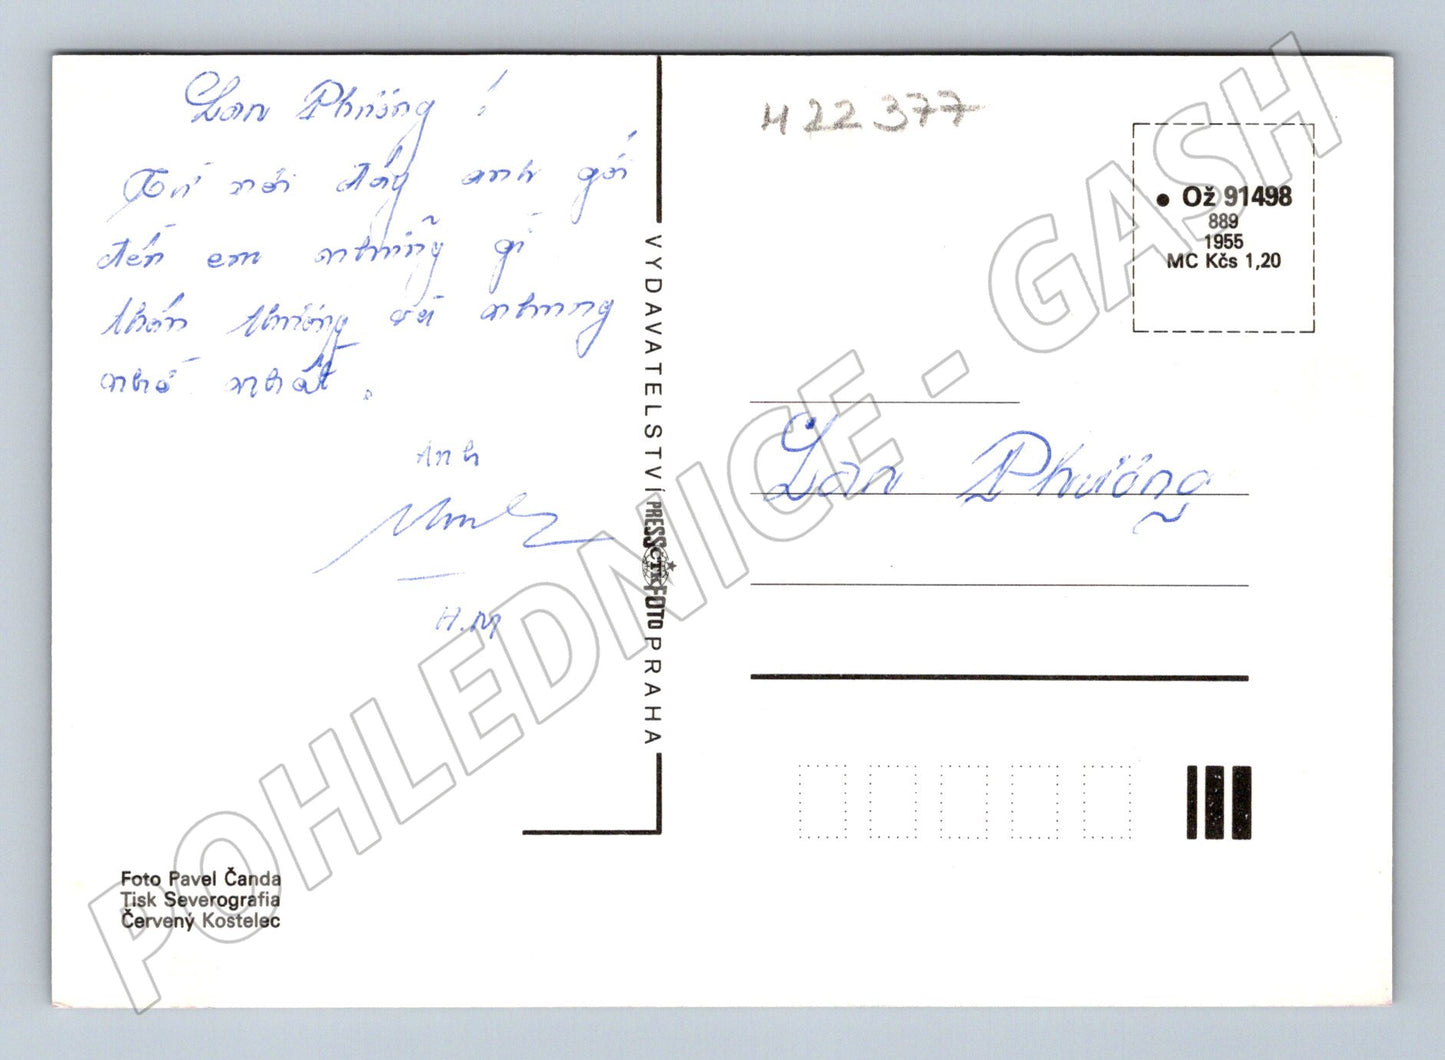 Lan Phương !
Từ nơi đây anh gởi
đến em những gì
thân thương và nhung
nhớ nhất.
Anh
H.M
VYDAVATELSTVÍ PRESSFOTO PRAHA
ČTK
Foto Pavel Čanda
Tisk Severografia
Červený Kostelec
H 22377
• Ož 91498
889
1955
MC Kčs 1,20
Lan Phương
POHLEDNICE - GASH